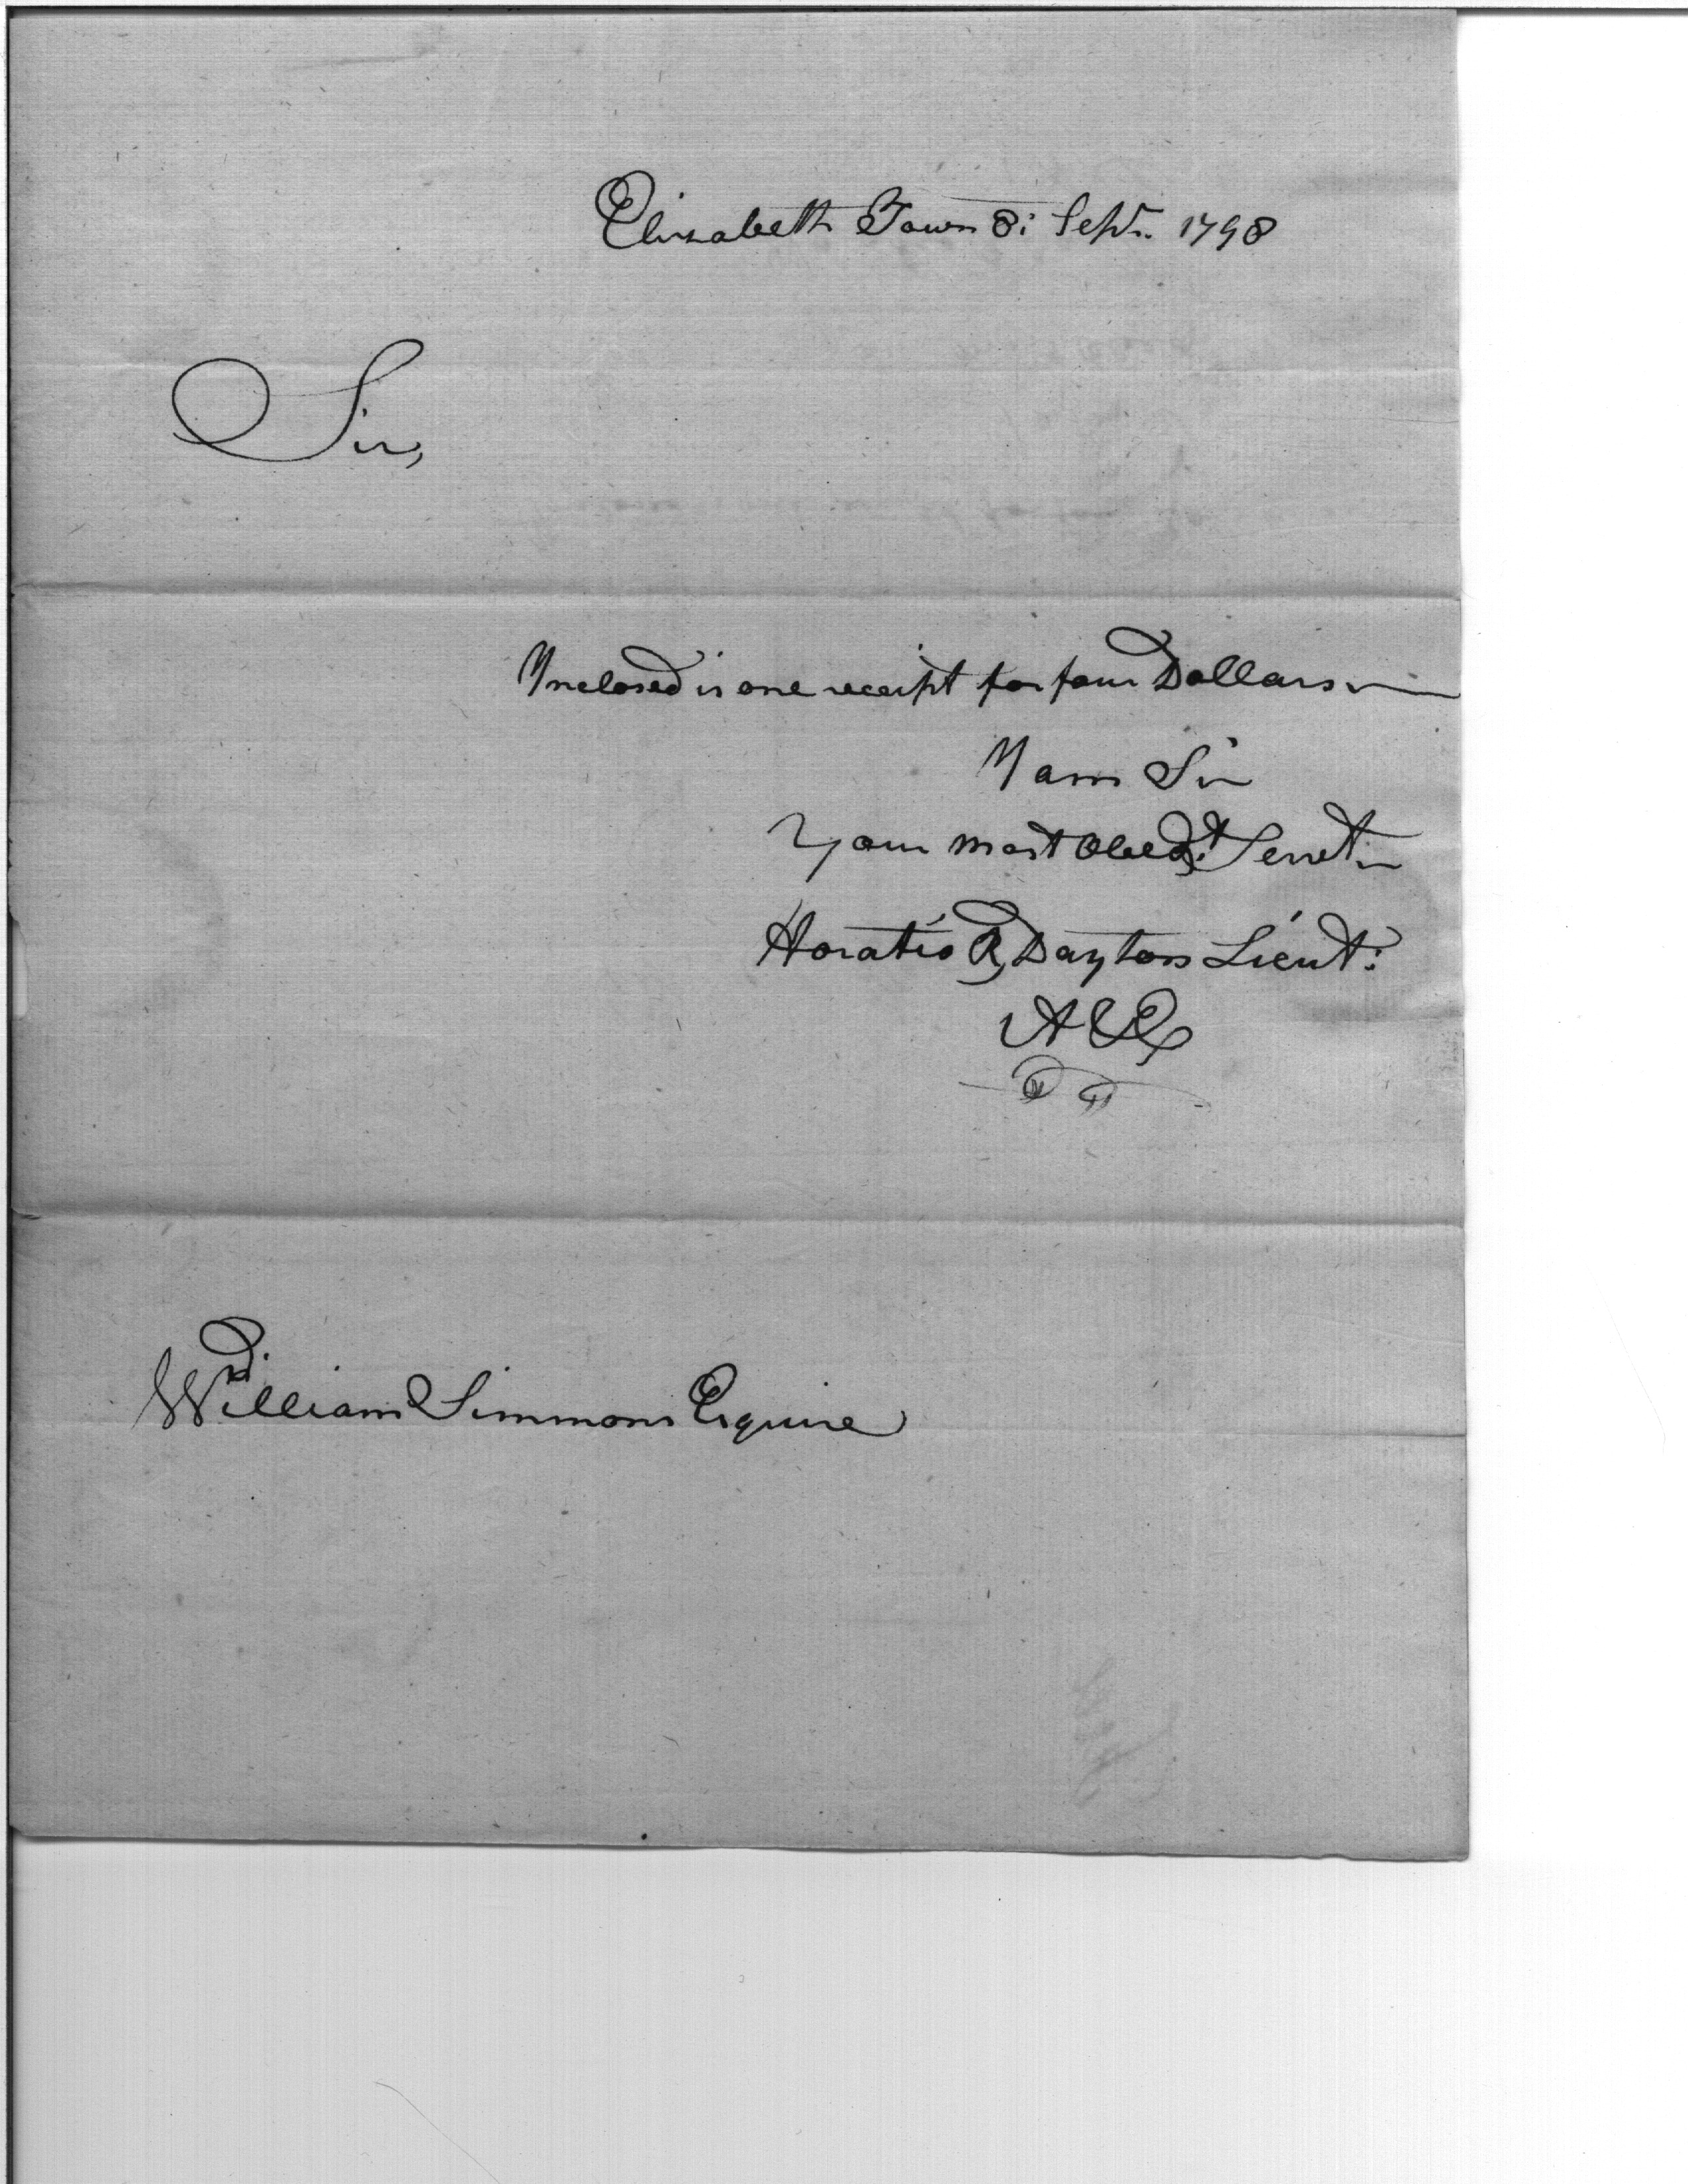 Elizabeth Town 8: Sept. 1798
Sir,
Inclosed is one receipt for four Dollars
I am Sir
Your most Obedt. Servt.
Horatio R Dayton Lieut:
William Simmons Esquire